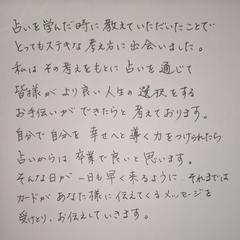 占いを学んだ時に教えていただいたことで
とってもステキな考え方に出会いました。
私はその考えをもとに占いを通じて
皆様がより良い人生の選択をする
お手伝いができたらと考えております。
自分で自分を幸せへと導く力をつけられたら
占いからは卒業で良いと思います。
そんな日が一日も早く来るように それまでは
カードがあなた様に伝えてくるメッセージを
受けとり、お伝えしていきます。